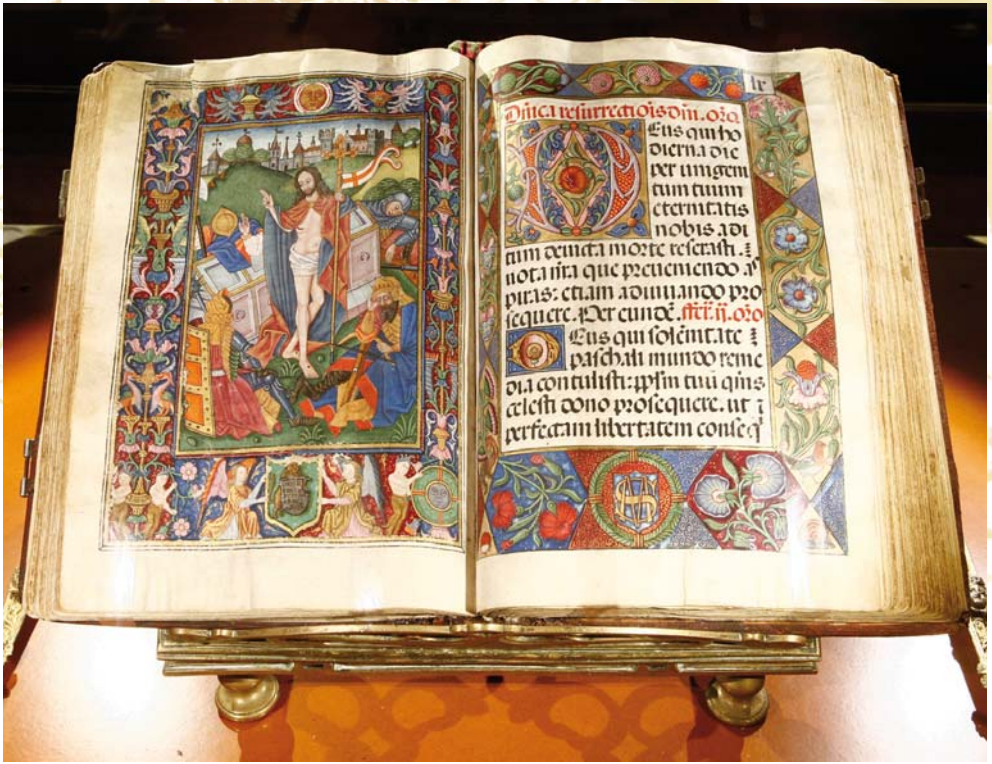 lx
Dñica resurrectiõis dñi. orõ.
Deus qui ho
dierna die
per unigeni
tum tuum
eternitatis
nobis adi
tum devicta morte reserasti. :
vota nr̃a que preveniendo as
piras: etiam adiuvando pro
sequere. Per eundẽ. orõ
Deus qui solẽnitate :
paschali mundo reme
dia contulisti: ppl̃m tuũ q̃ms
celesti dono prosequere. ut :
perfectam libertatem conseq̃